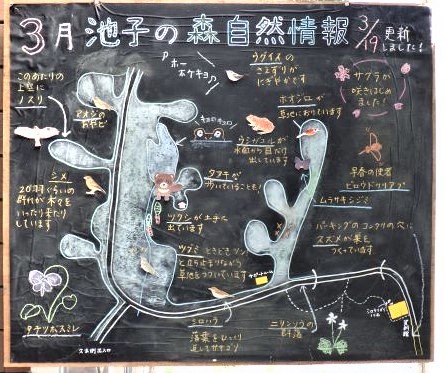 3月 池子の森自然情報
3/19 更新しました!
ウグイスの
さえずりが
にぎやかです
「ホー
ホケキョ」
サクラが
咲きはじめ
ました!
このあたりの
上空に
ノスリ
アオジの
ホオジロが
ウシガエルが
出ています
早春の使者
ビロウドツリアブ
シメ
20羽ぐらいの
群れが木々を
いったり来たり
しています
タヌキが
歩いていることも!
ムラサキシジミ
ツクシが土手に
出ています
パーキングのコンクリの穴に
スズメが巣を
つくっています
ツグミ
草地をつついています
タチツボスミレ
シロハラ
落葉をひっくり
返してガサゴソ
ニリンソウの
群落